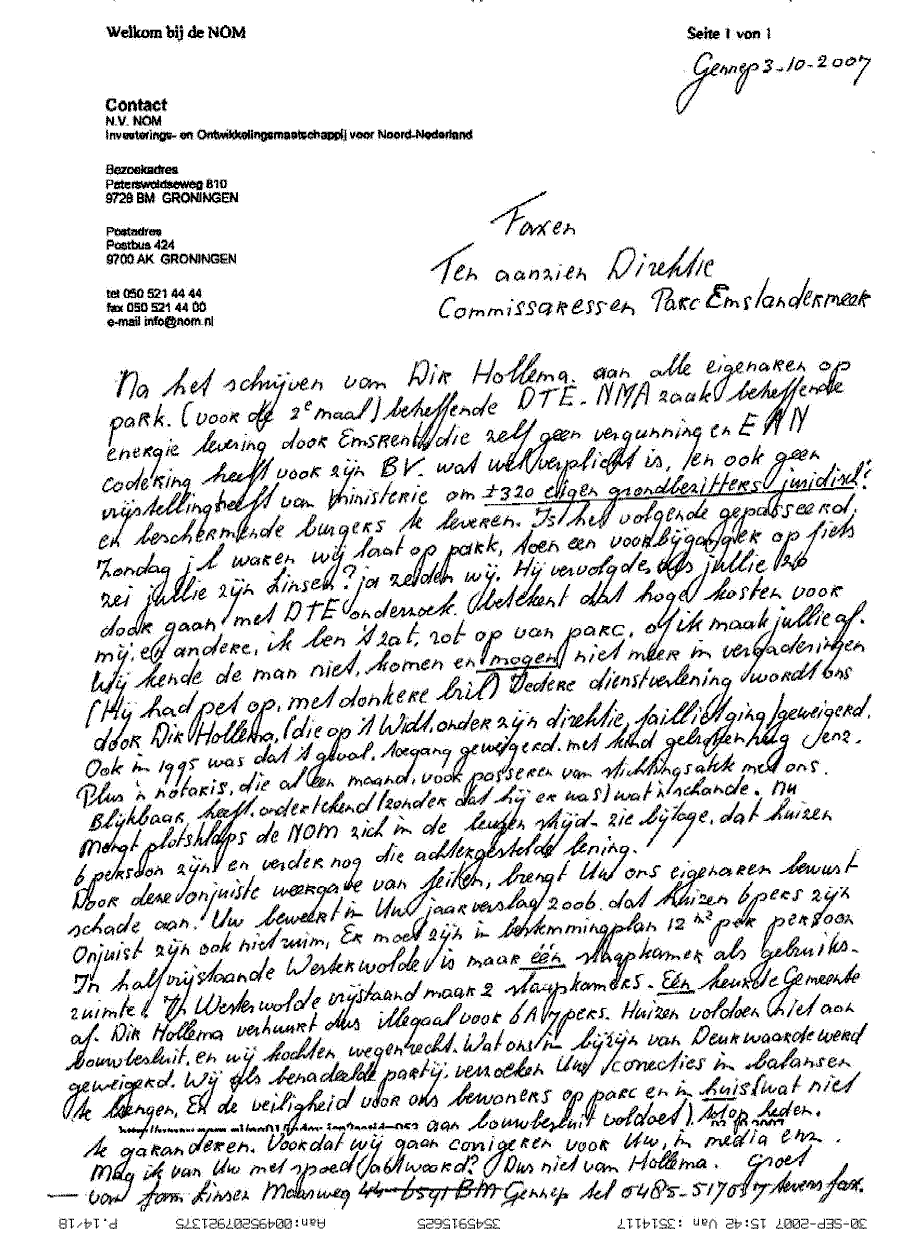 Welkom bij de NOM
Seite 1 von 1
Gennep 3-10-2007
Contact
N.V. NOM
Investerings- en Ontwikkelingsmaatschappij voor Noord-Nederland
Bezoekadres
Paterswoldseweg 810
9728 BM GRONINGEN
Postadres
Postbus 424
9700 AK GRONINGEN
tel 050 521 44 44
fax 050 521 44 00
e-mail info@nom.nl
Faxen
Ten aanzien Direktie
Commissaressen Parc Emslandermeer
Na het schrijven van Dir Hollema, aan alle eigenaren op
park. (voor de 2e maal) beheffende DTE-NMA zaak beheffende
energie levering door Emsrent, die zelf geen vergunning en EAN
codering heeft voor zijn BV. wat wel verplicht is, en ook geen
vrijstelling heeft van ministerie om ±320 eigen grondbezitters juridisch?
en beschermende burgers te leveren. Ist het volgende gepasseerd,
Zondag j l waren wij laat op park, toen een voorbijganger op fiets
zei jullie zijn Linsen? ja zeiden wij. Hij vervolgde, als jullie zo
door gaan met DTE onderzoek. betekent dat hoge kosten voor
mij, en andere, ik ben 't zat, rot op van parc, of ik maak jullie af.
Wij kende de man niet, komen en mogen niet meer in vergaderingen
(Hij had pet op, met donkere bril) Iedere dienstverlening wordt ons
door Dir Hollema, (die op 't Widt, onder zijn direktie, failliet ging) geweigerd.
Ook in 1995 was dat 't geval, toegang geweigerd, met hond enz.
Plus 'n notaris, die al een maand, voor passeren van stichtingsakte met ons.
Blijkbaar, heeft ondertekend (zonder dat hij er was) wat 'n schande. Nu
Mengt plotsklaps de NOM zich in de leugen strijd- zie bijlage, dat huizen
6 persoon zijn! en verder nog die achtergestelde lening.
Door deze onjuiste weergave van feiten, brengt Uw ons eigenaren bewust
schade aan! Uw beweert in Uw jaarverslag 2006, dat huizen 6 pers zijn
Onjuist zijn ook niet ruim, Er moet zijn in bestemmingplan 12 m² per persoon
In halfvrijstaande Westerwolde is maar één slaapkamer als gebruiks-
ruimte! In Westerwolde vrijstaand maar 2 slaapkamers. Eén keurde Gemeente
af. Dir Hollema verhuurt dus illegaal voor 6 A 7 pers. Huizen voldoen niet aan
bouwbesluit, en wij kochten, wegenrecht. Wat ons in bijzijn van Deurwaarde werd
geweigerd. Wij als benadeelde partij, verzoeken Uw conecties in balansen
te brengen, En de veiligheid voor ons bewoners op parc en in huis (wat niet
aan bouwbesluit voldoet) tot op heden.
te garanderen. Voordat wij gaan corrigeren voor Uw, in media enz.
Mag ik van Uw met spoed antwoord? Dus niet van Hollema. Groet
van fam Linsen Maasweg Gennep tel 0485-517057 tevens fax.
30-SEP-2007 15:42 Van :3514117
3545915625
Aan:0049595207921375
P.14/18